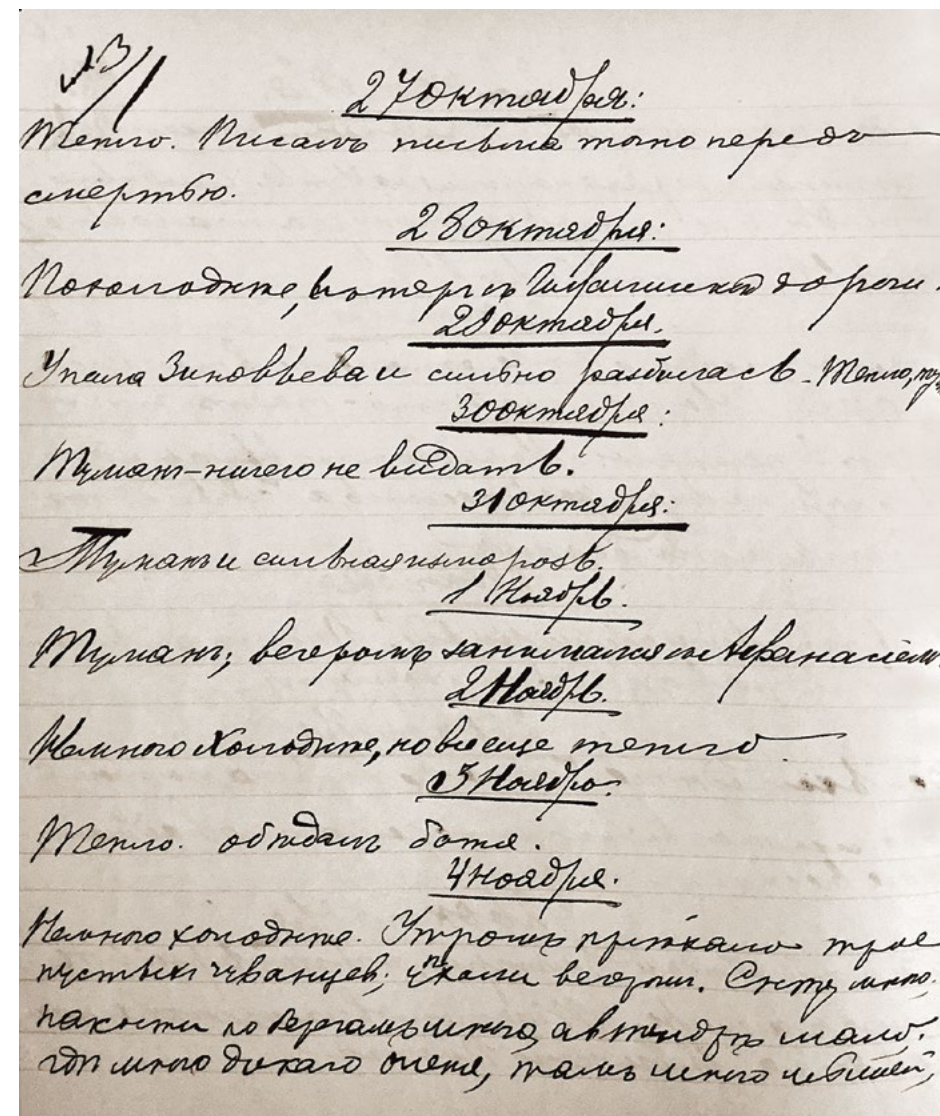 №3/1
27 октября:
Тепло. Писалъ письма точно передъ
смертью.
28 октября:
Похолоднѣе, вѣтеръ съ дороги.
29 октября.
Упала Зиновьева и сильно разбилась. Тепло,
30 октября:
Туманъ – ничего не видать.
31 октября:
Туманъ и сильная изморозь.
1 Ноябрь.
Туманъ; вечеромъ занимался съ Афанасіем
2 Ноябрь.
Немного холоднѣе, но все еще тепло
3 Ноябрь.
Тепло. обѣдалъ дома.
4 ноября.
Немного холоднѣе. Утромъ пріѣхало трое
пустыхъ чванцев; уѣхали вечером. Снегу много.
по берегамъ много, а въ тундрѣ мало.
гдѣ много дикаго оленя, тамъ много